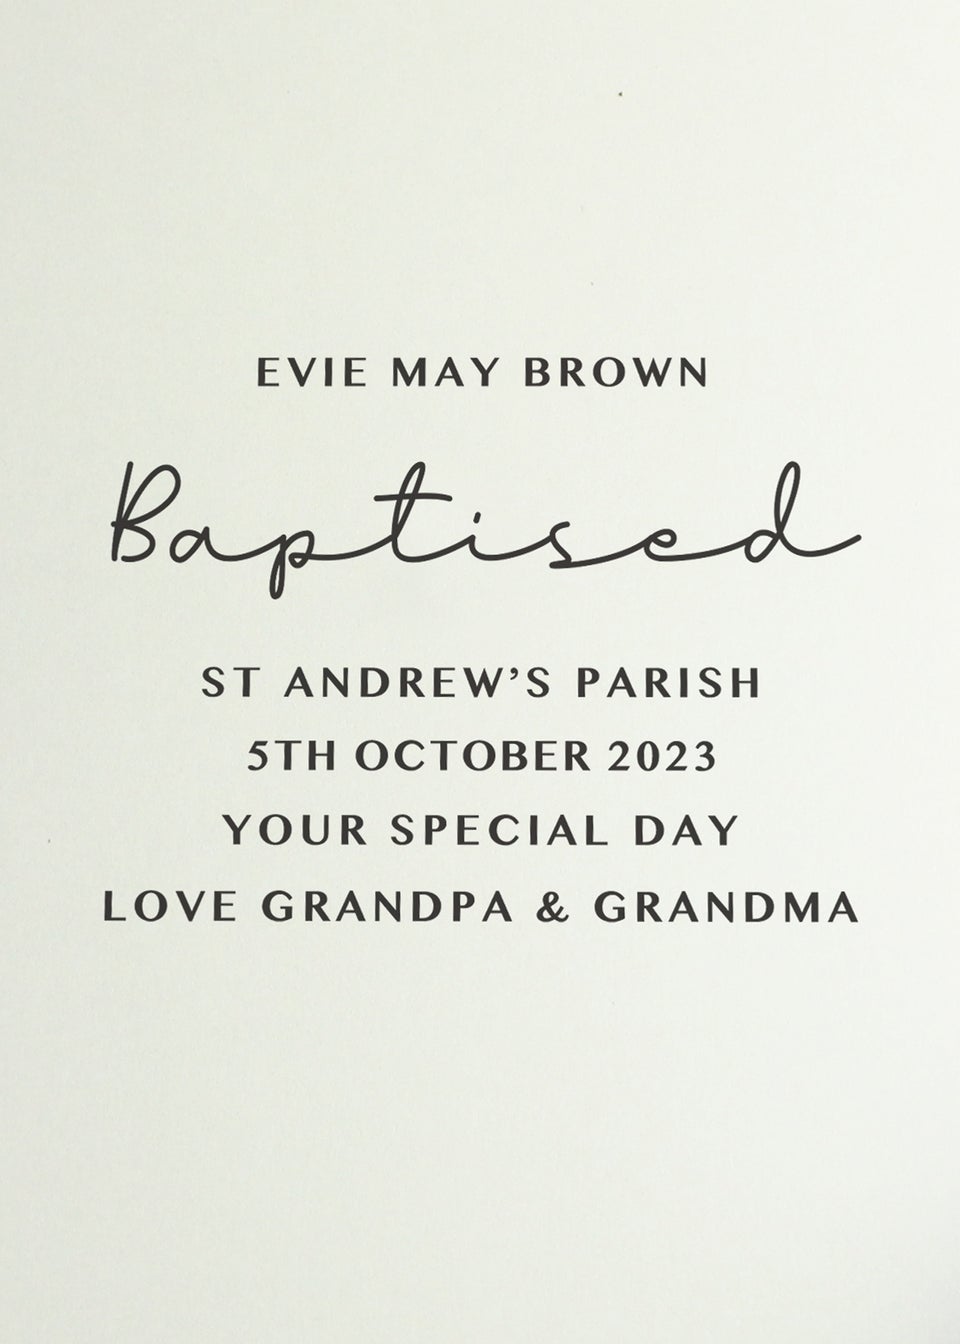 EVIE MAY BROWN
Baptised
ST ANDREW’S PARISH
5TH OCTOBER 2023
YOUR SPECIAL DAY
LOVE GRANDPA & GRANDMA